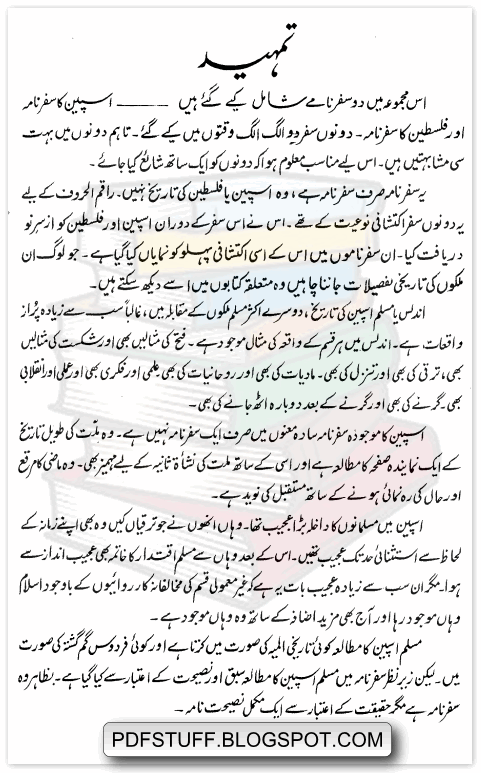 تمہید
اس مجموعہ میں دو سفرنامے شامل کیے گئے ہیں ــــــ اسپین کا سفرنامہ
اور فلسطین کا سفرنامہ۔ دونوں سفر دو الگ الگ وقتوں میں کیے گئے۔ تاہم دونوں میں بہت
سی مشابہتیں ہیں۔ اس لیے مناسب معلوم ہوا کہ دونوں کو ایک ساتھ شائع کیا جائے۔
یہ سفرنامہ صرف سفرنامہ ہے، وہ اسپین یا فلسطین کی تاریخ نہیں۔ راقم الحروف کے لیے
یہ دونوں سفر اکتشافی نوعیت کے تھے۔ اس نے اس سفر کے دوران اسپین اور فلسطین کو از سر نو
دریافت کیا۔ ان سفرناموں میں اس کے اسی اکتشافی پہلو کو نمایاں کیا گیا ہے۔ جو لوگ ان
ملکوں کی تاریخی تفصیلات جاننا چاہیں وہ متعلقہ کتابوں میں اسے دیکھ سکتے ہیں۔
اندلس یا مسلم اسپین کی تاریخ، دوسرے اکثر مسلم ملکوں کے مقابلہ میں، غالباً سب سے زیادہ پُر از
واقعات ہے۔ اندلس میں ہر قسم کے واقعہ کی مثال موجود ہے۔ فتح کی مثالیں بھی اور شکست کی مثالیں
بھی، ترقی کی بھی اور تنزل کی بھی۔ مادیات کی بھی اور روحانیات کی بھی، علمی اور فکری بھی اور عملی اور انقلابی
بھی۔ گرنے کی بھی اور گرنے کے بعد دوبارہ اٹھ جانے کی بھی۔
اسپین کا موجودہ سفرنامہ سادہ معنوں میں صرف ایک سفرنامہ نہیں ہے۔ وہ ملت کی طویل تاریخ
کے ایک نمایندہ صفحہ کا مطالعہ ہے اور اسی کے ساتھ ملت کی نشأۃ ثانیہ کے لیے مہمیز بھی۔ وہ ماضی کا مرقع
اور حال کی رہ نمائی ہونے کے ساتھ مستقبل کی نوید ہے۔
اسپین میں مسلمانوں کا داخلہ بڑا عجیب تھا۔ وہاں انھوں نے جو ترقیاں کیں وہ بھی اپنے زمانہ کے
لحاظ سے استثنائی حد تک عجیب تھیں۔ اس کے بعد وہاں سے مسلم اقتدار کا خاتمہ بھی عجیب انداز سے
ہوا۔ مگر ان سب سے زیادہ عجیب بات یہ ہے کہ غیر معمولی قسم کی مخالفانہ کارروائیوں کے باوجود اسلام
وہاں موجود رہا اور آج بھی مزید اضافہ کے ساتھ وہ وہاں موجود ہے۔
مسلم اسپین کا مطالعہ کوئی تاریخی المیہ کی صورت میں کرتا ہے اور کوئی فردوس گم گشتہ کی صورت
میں۔ لیکن زیرنظر سفرنامہ میں مسلم اسپین کا مطالعہ سبق اور نصیحت کے اعتبار سے کیا گیا ہے۔ بظاہر وہ
سفرنامہ ہے مگر حقیقت کے اعتبار سے ایک مکمل نصیحت نامہ۔
PDFSTUFF.BLOGSPOT.COM